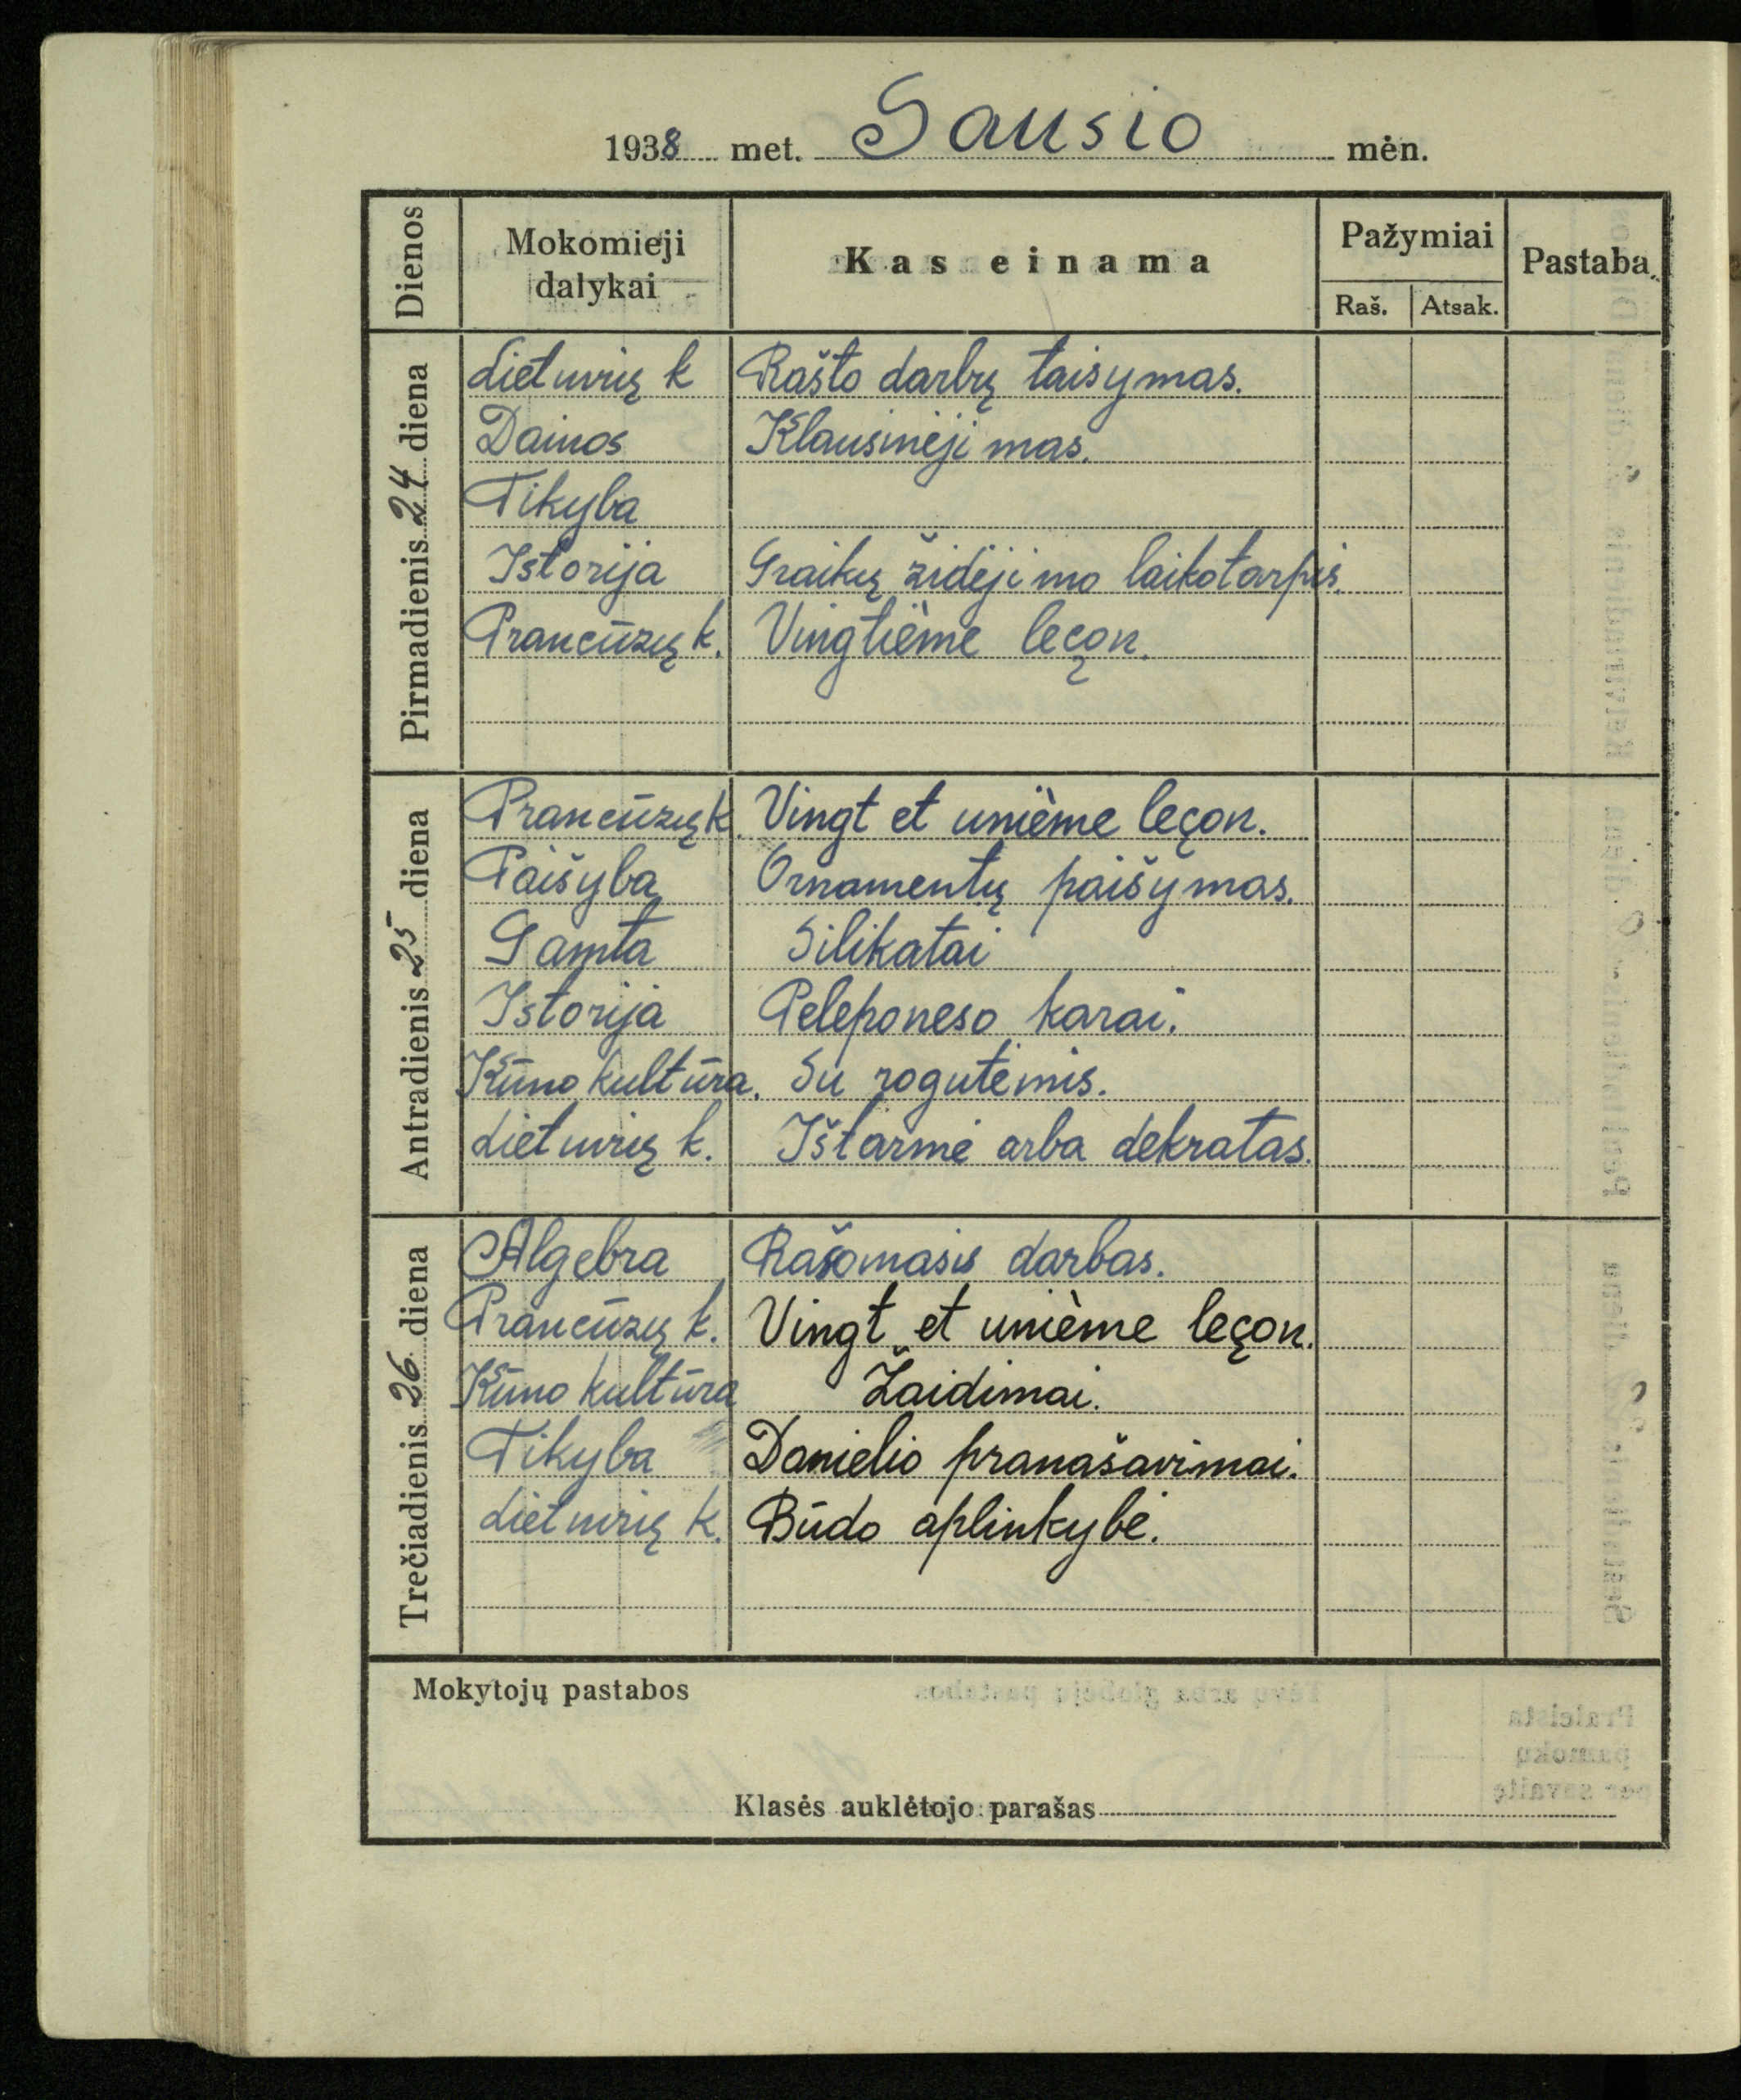 1938 met. Sausio mėn.
Dienos Mokomieji dalykai Kas einama Pažymiai Raš. Atsak. Pastaba
Pirmadienis 24 diena
Lietuvių k Rašto darbų taisymas.
Dainos Klausinėjimas.
Tikyba
Istorija Graikų židėjimo laikotarpis.
Prancūzų k. Vingtième leçon.
Antradienis 25 diena
Prancūzų k. Vingt et unième leçon.
Paišyba Ornamentų paišymas.
Gamta Silikatai
Istorija Peleponeso karai.
Kūno kultūra. Su rogutėmis.
Lietuvių k. Ištarmė arba dekratas.
Trečiadienis 26 diena
Algebra Rašomasis darbas.
Prancūzų k. Vingt et unième leçon.
Kūno kultūra Žaidimai.
Tikyba Danielio pranašavimai.
Lietuvių k. Būdo aplinkybė.
Mokytojų pastabos
Klasės auklėtojo parašas